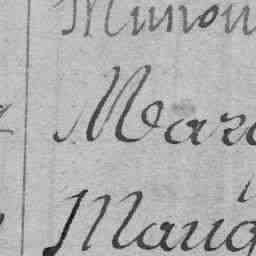 Munou
Marg
Maug